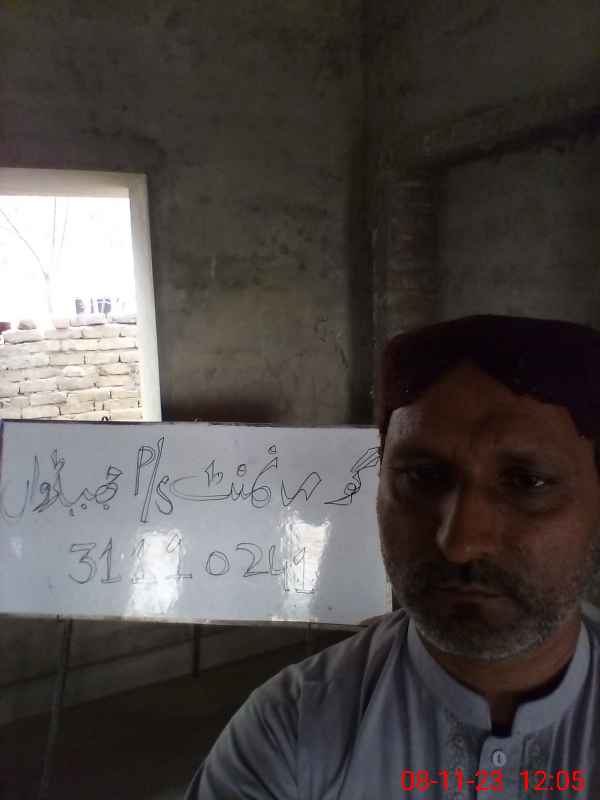 گورنمنٹ P/S
31110241
08-11-23 12:05